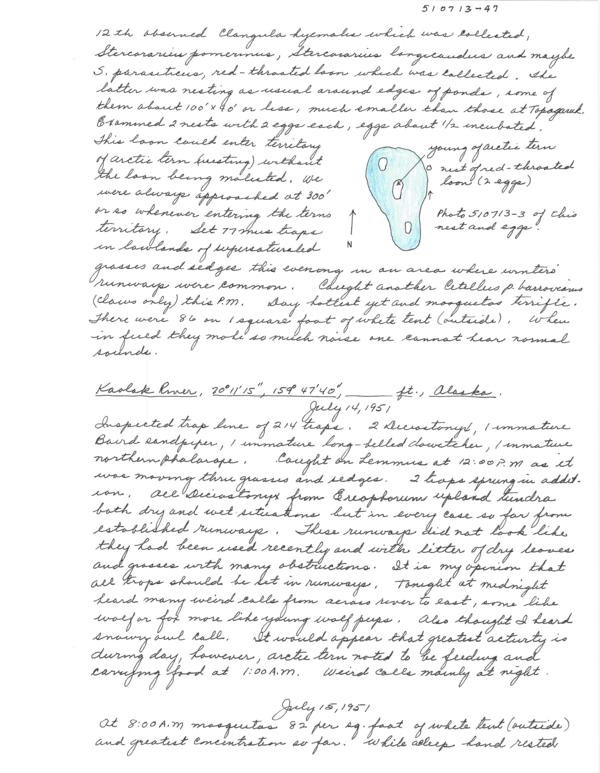 510713-47
12th observed Clangula hyemalis which was collected,
Stercorarius pomerinus, Stercorarius longicaudus and maybe
S. parasiticus, red-throated loon which was collected. The
latter was nesting as usual around edges of ponds, some of
them about 100' x 40' or less, much smaller than those at Topagaruk.
Examined 2 nests with 2 eggs each, eggs about 1/2 incubated.
This loon could enter territory
of arctic tern (nesting) without
the loon being molested. We
were always approached at 300'
or so whenever entering the terns
territory. Set 77 mus traps
in lowlands of supersaturated
young of arctic tern
nest of red-throated
loon (2 eggs)
Photo 510713-3 of this
nest and eggs.
N
grasses and sedges this evening in an area where winter
runways were common. Caught another Citellus p. barrowensis
(claws only) this P.M. Day hottest yet and mosquetos terrific.
There were 86 on 1 square foot of white tent (outside). When
in feed they make so much noise one cannot hear normal
sounds.
Kaolak River, 70°11'15", 159°47'40", ____ ft., Alaska.
July 14, 1951
Inspected trap line of 214 traps. 2 Dicrostonyx, 1 immature
Baird sandpiper, 1 immature long-billed dowitcher, 1 immature
northern phalarope. Caught on Lemmus at 12:00 P.M as it
was moving thru grasses and sedges. 2 traps sprung in addit-
ion. All Dicrostonyx from Ereophorum upland tundra
both dry and wet situations but in every case so far from
established runways. These runways did not look like
they had been used recently and with litter of dry leaves
and grasses with many obstructions. It is my opinion that
all traps should be set in runways. Tonight at midnight
heard many weird calls from across river to east, some like
wolf or fox more like young wolf pups. Also thought I heard
snowy owl call. It would appear that greatest activity is
during day, however, arctic tern noted to be feeding and
carrying food at 1:00 A.M. Weird calls mainly at night.
July 15, 1951
At 8:00 A.M mosquetos 82 per sq. foot of white tent (outside)
and greatest concentration so far. While asleep hand rested